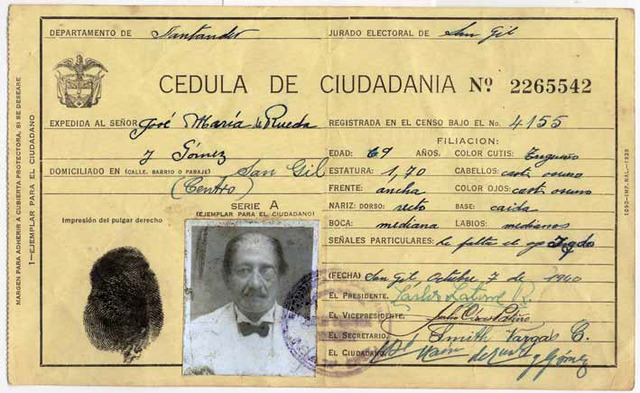 DEPARTAMENTO DE Santander JURADO ELECTORAL DE San Gil
CEDULA DE CIUDADANIA Nº 2265542
EXPEDIDA AL SEÑOR José María de Rueda
y Gómez
DOMICILIADO EN (CALLE, BARRIO O PARAJE) San Gil
(Centro)
SERIE A
(EJEMPLAR PARA EL CIUDADANO)
Impresión del pulgar derecho
REGISTRADA EN EL CENSO BAJO EL No. 4155
FILIACION:
EDAD: 69 AÑOS. COLOR CUTIS: Trigueño
ESTATURA: 1,70 CABELLOS: cast. oscuro
FRENTE: ancha COLOR OJOS: cast. oscuro
NARIZ: DORSO: recto BASE: caida
BOCA: mediana LABIOS: medianos
SEÑALES PARTICULARES: le falta el ojo Izqdo
(FECHA) San Gil, Octubre 7 de 1940
EL PRESIDENTE,
EL VICEPRESIDENTE,
EL SECRETARIO, Smith Vargas C.
EL CIUDADANO, de Rueda y Gómez
MARGEN PARA ADHERIR A CUBIERTA PROTECTORA, SI SE DESEARE
1—EJEMPLAR PARA EL CIUDADANO